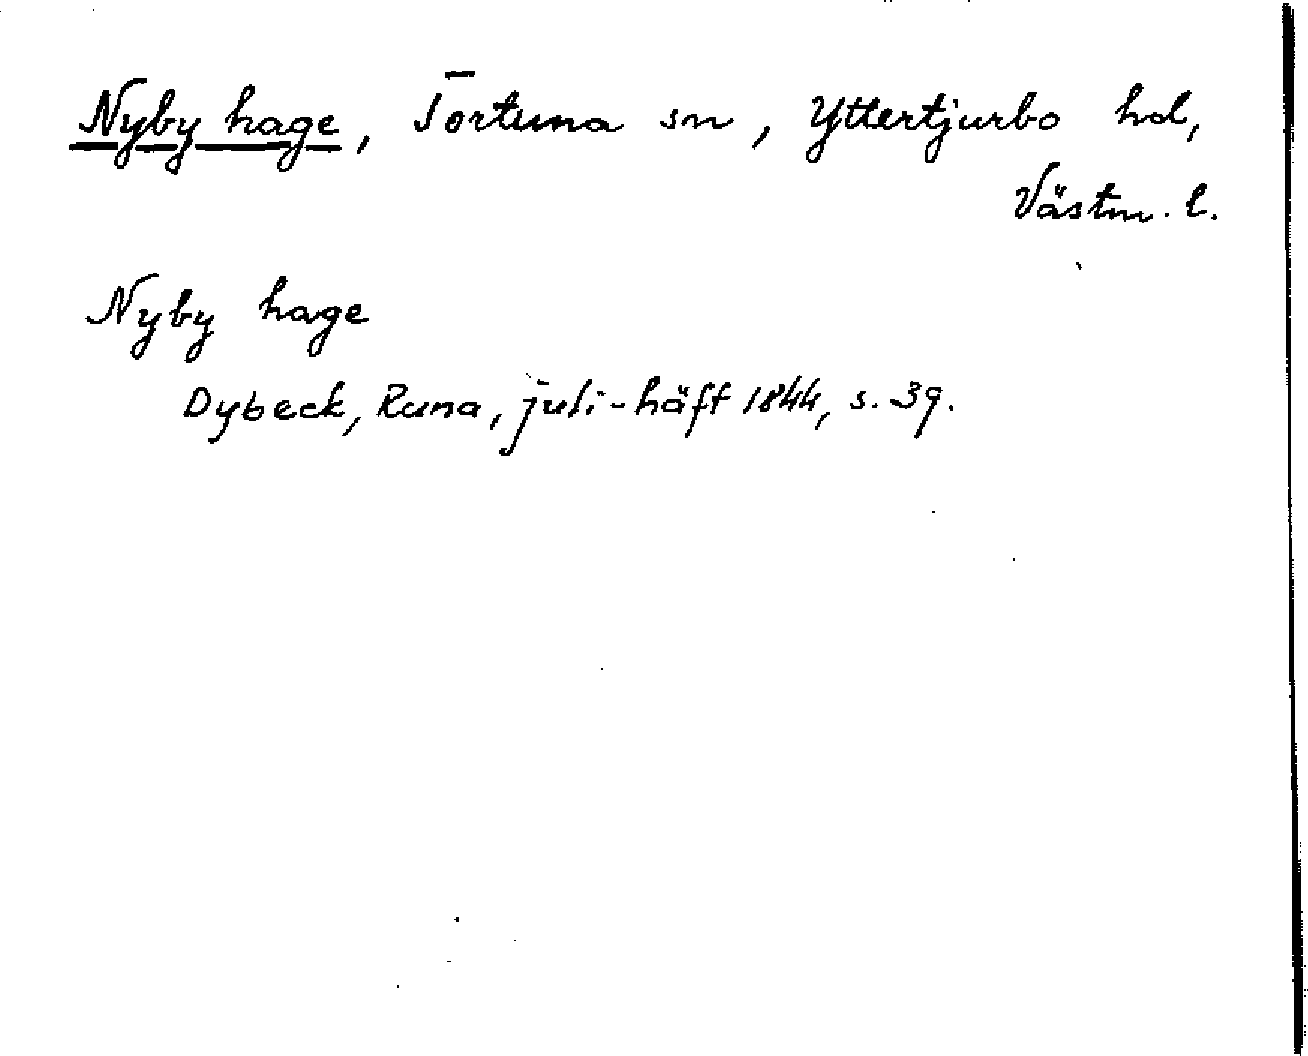 Nyby hage, Tortuna sn, Yttertjurbo hd,
Västm. l.
Nyby hage
Dybeck, Runa, juli-häft 1844, s. 39.